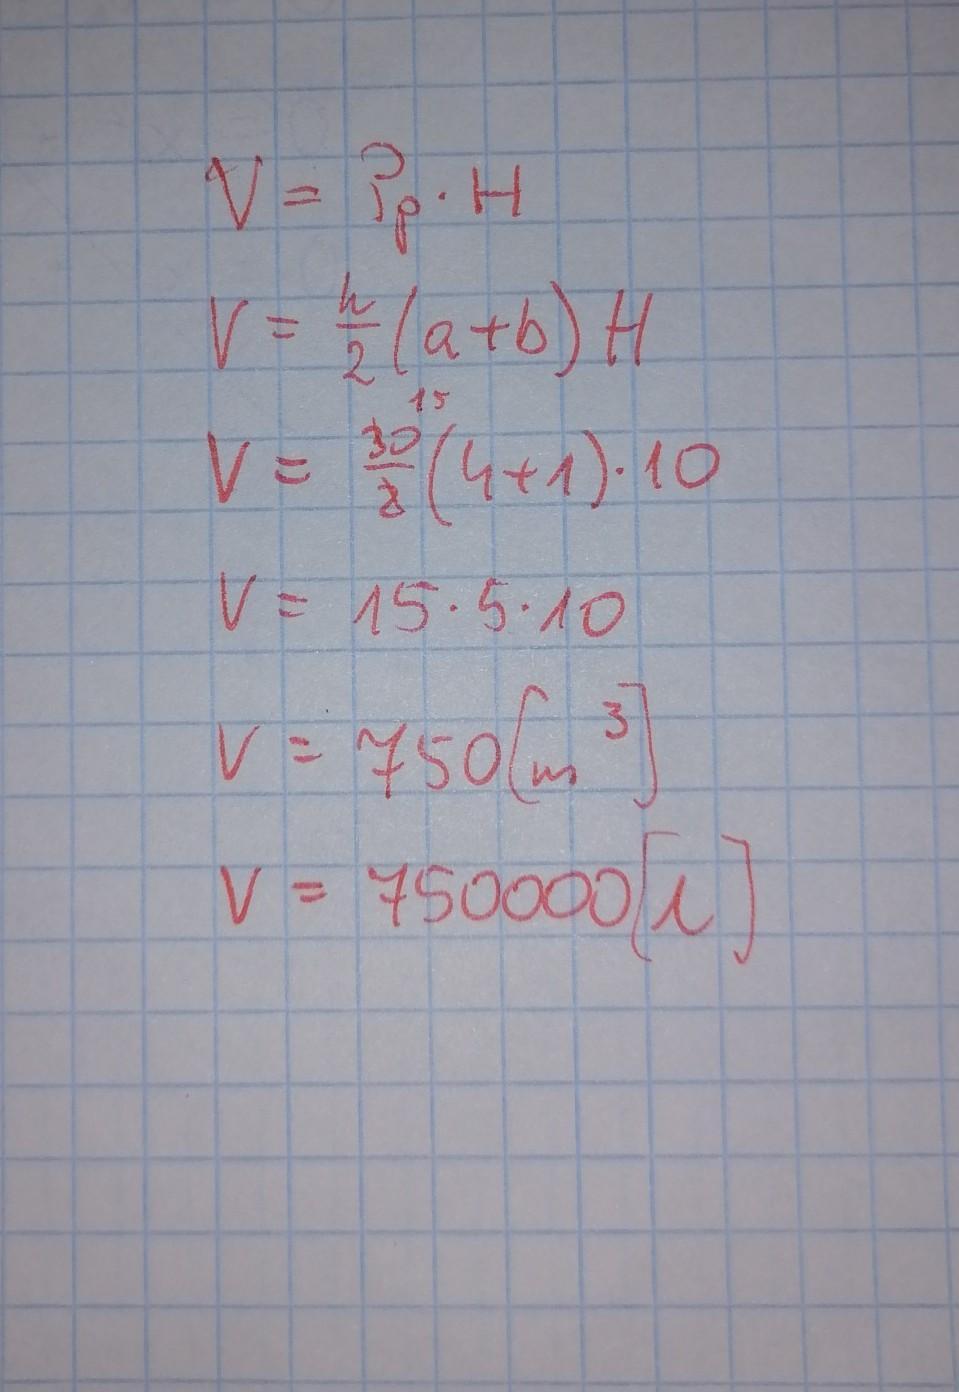 V = Pp · H
V = h/2 (a+b) H
V = 30/2 15 (4+1) · 10
V = 15 · 5 · 10
V = 750 [m³]
V = 750000 [l]